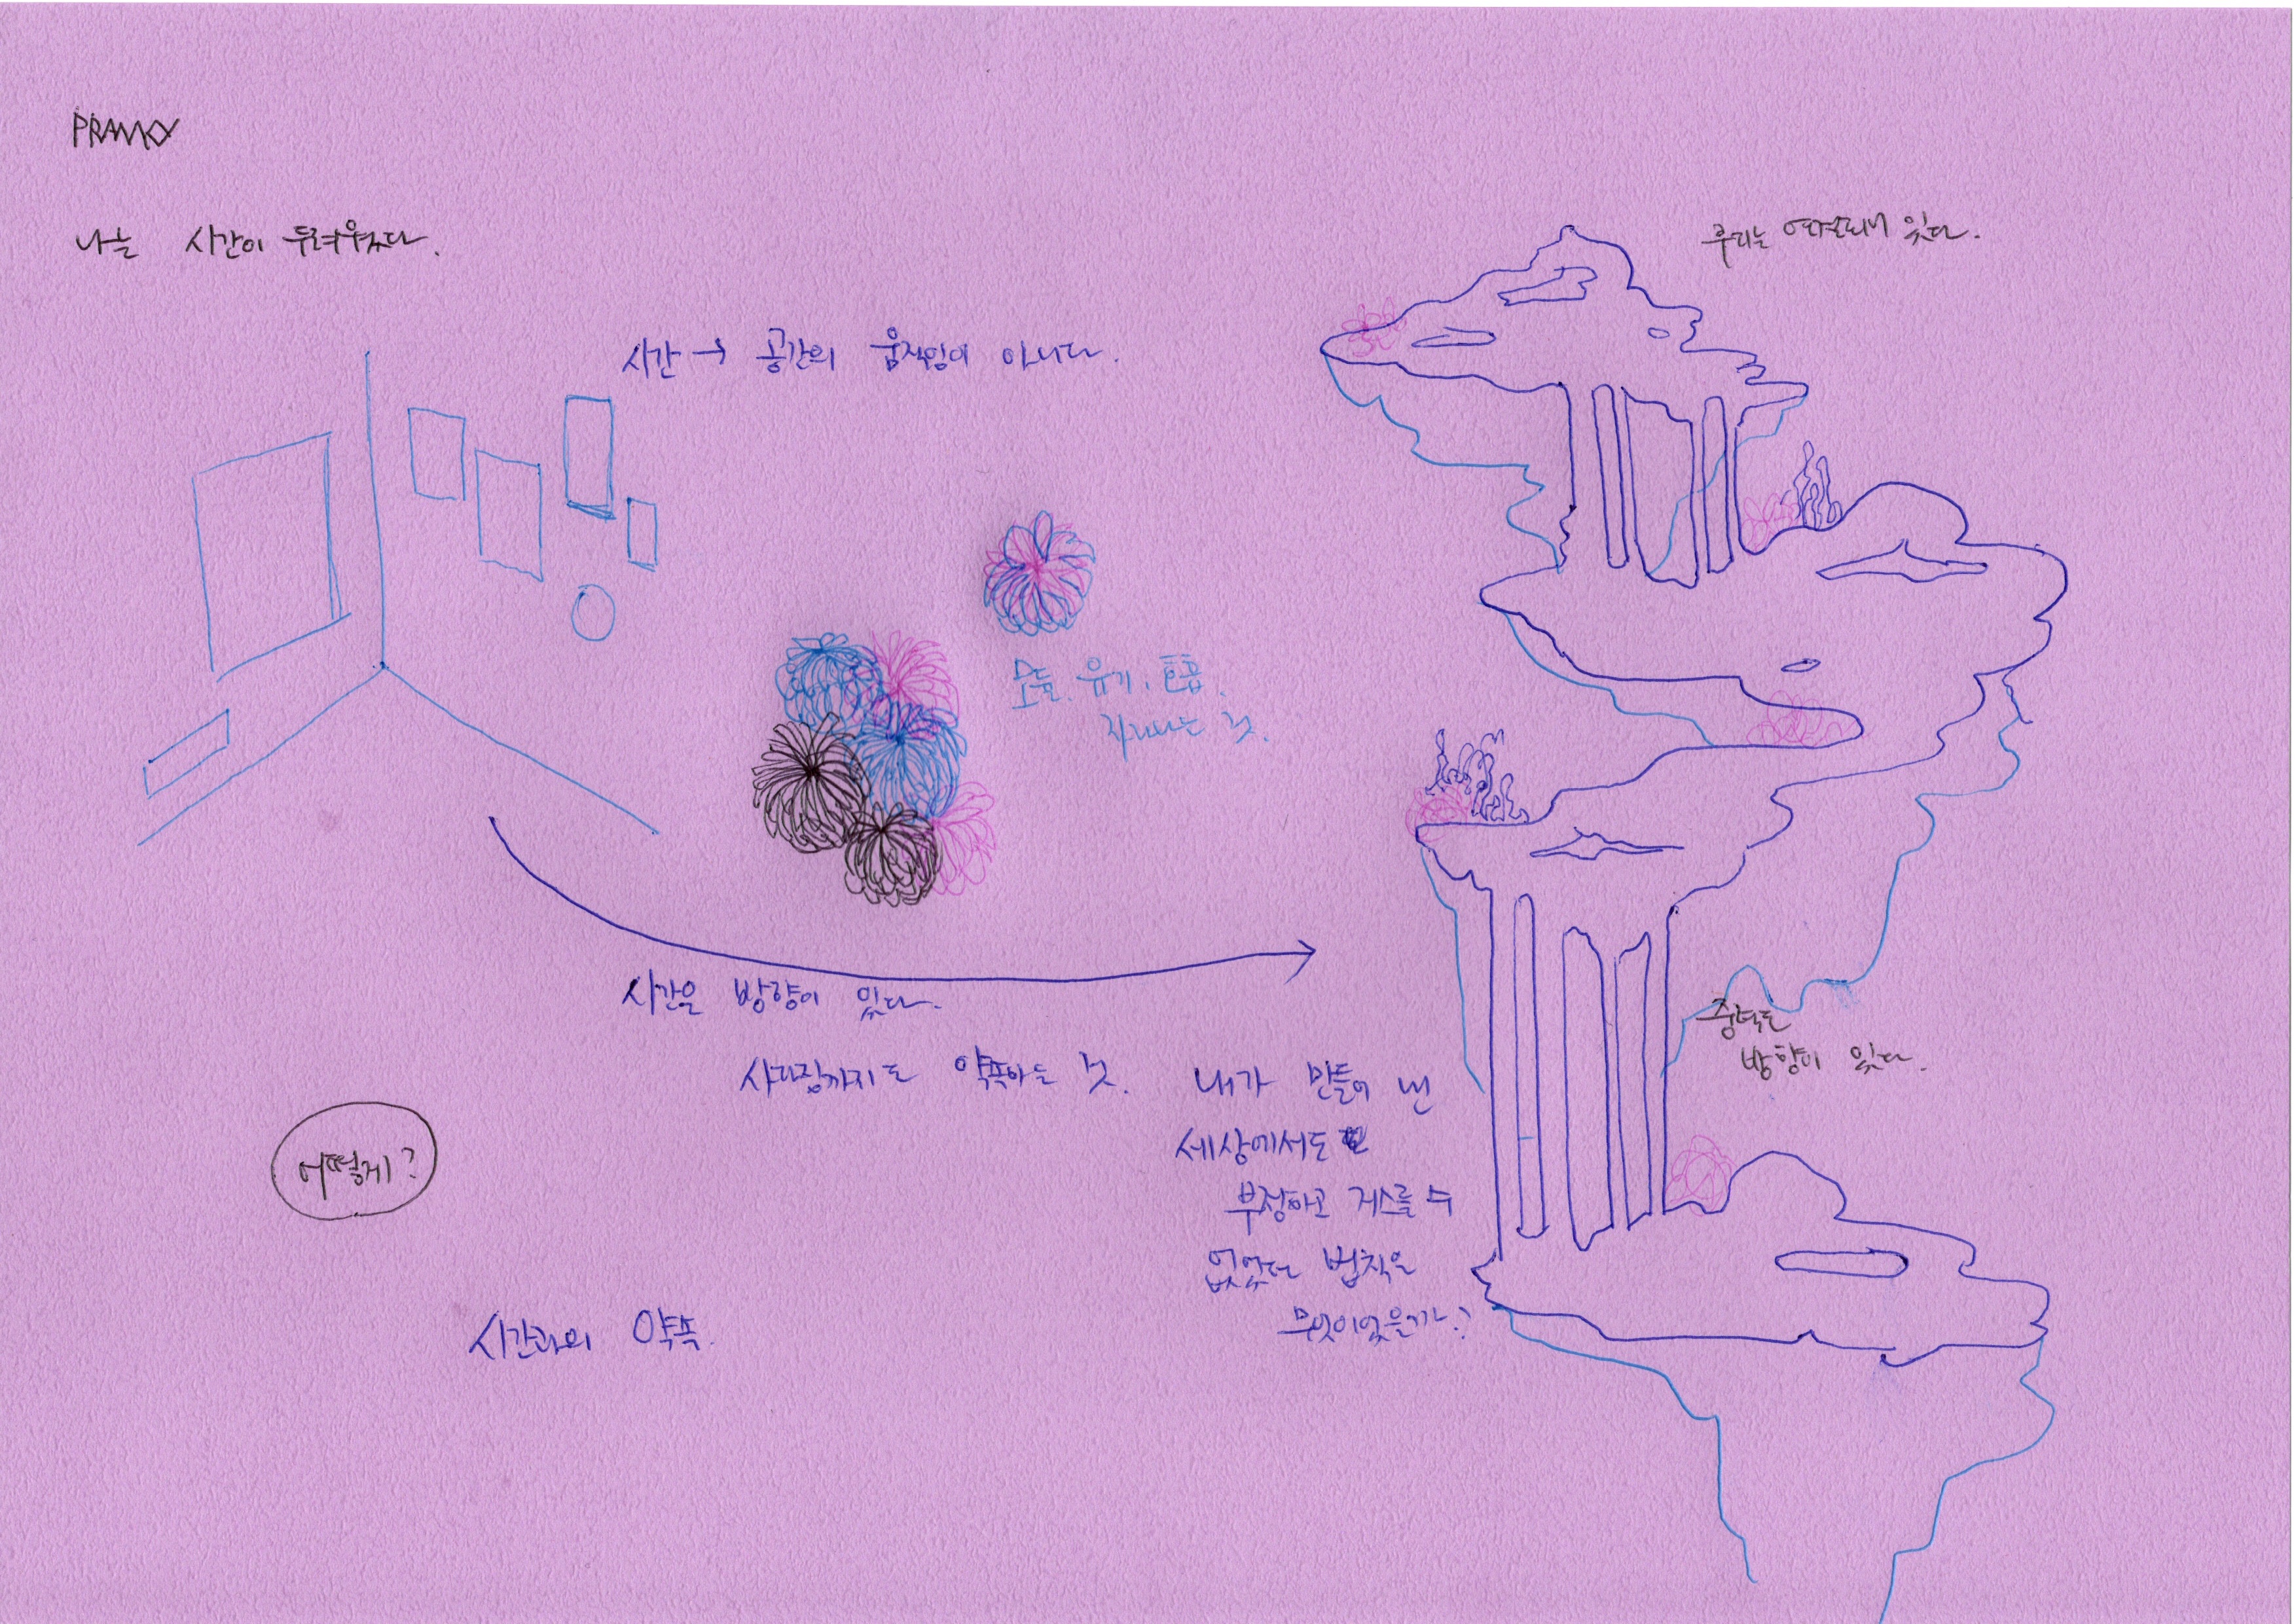 PRANKY
나는 시간이 두려웠다.
우리는 연결되어 있다.
시간 → 공간의 움직임이 아니다.
모듈. 유기. 호흡.
자라나는 것.
시간은 방향이 있다.
중력도
방향이 있다.
사라짐까지도 약속하는 것.
내가 만들어 낸
세상에서도
부정하고 거스를 수
없었던 법칙은
무엇이었을까?
어떻게?
시간과의 약속.